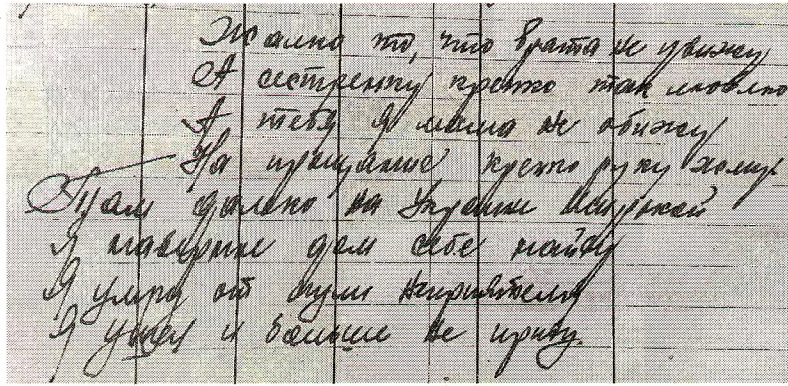 Жалко то, что брата не увижу
А сестренку крепко так люблю
А тебя я мама не обижу
На прощание крепко руку жму.
Там далеко на Украине широкой
Я наверное дом себе найду
Я умру от пули неприятеля
Я ушел и больше не приду.